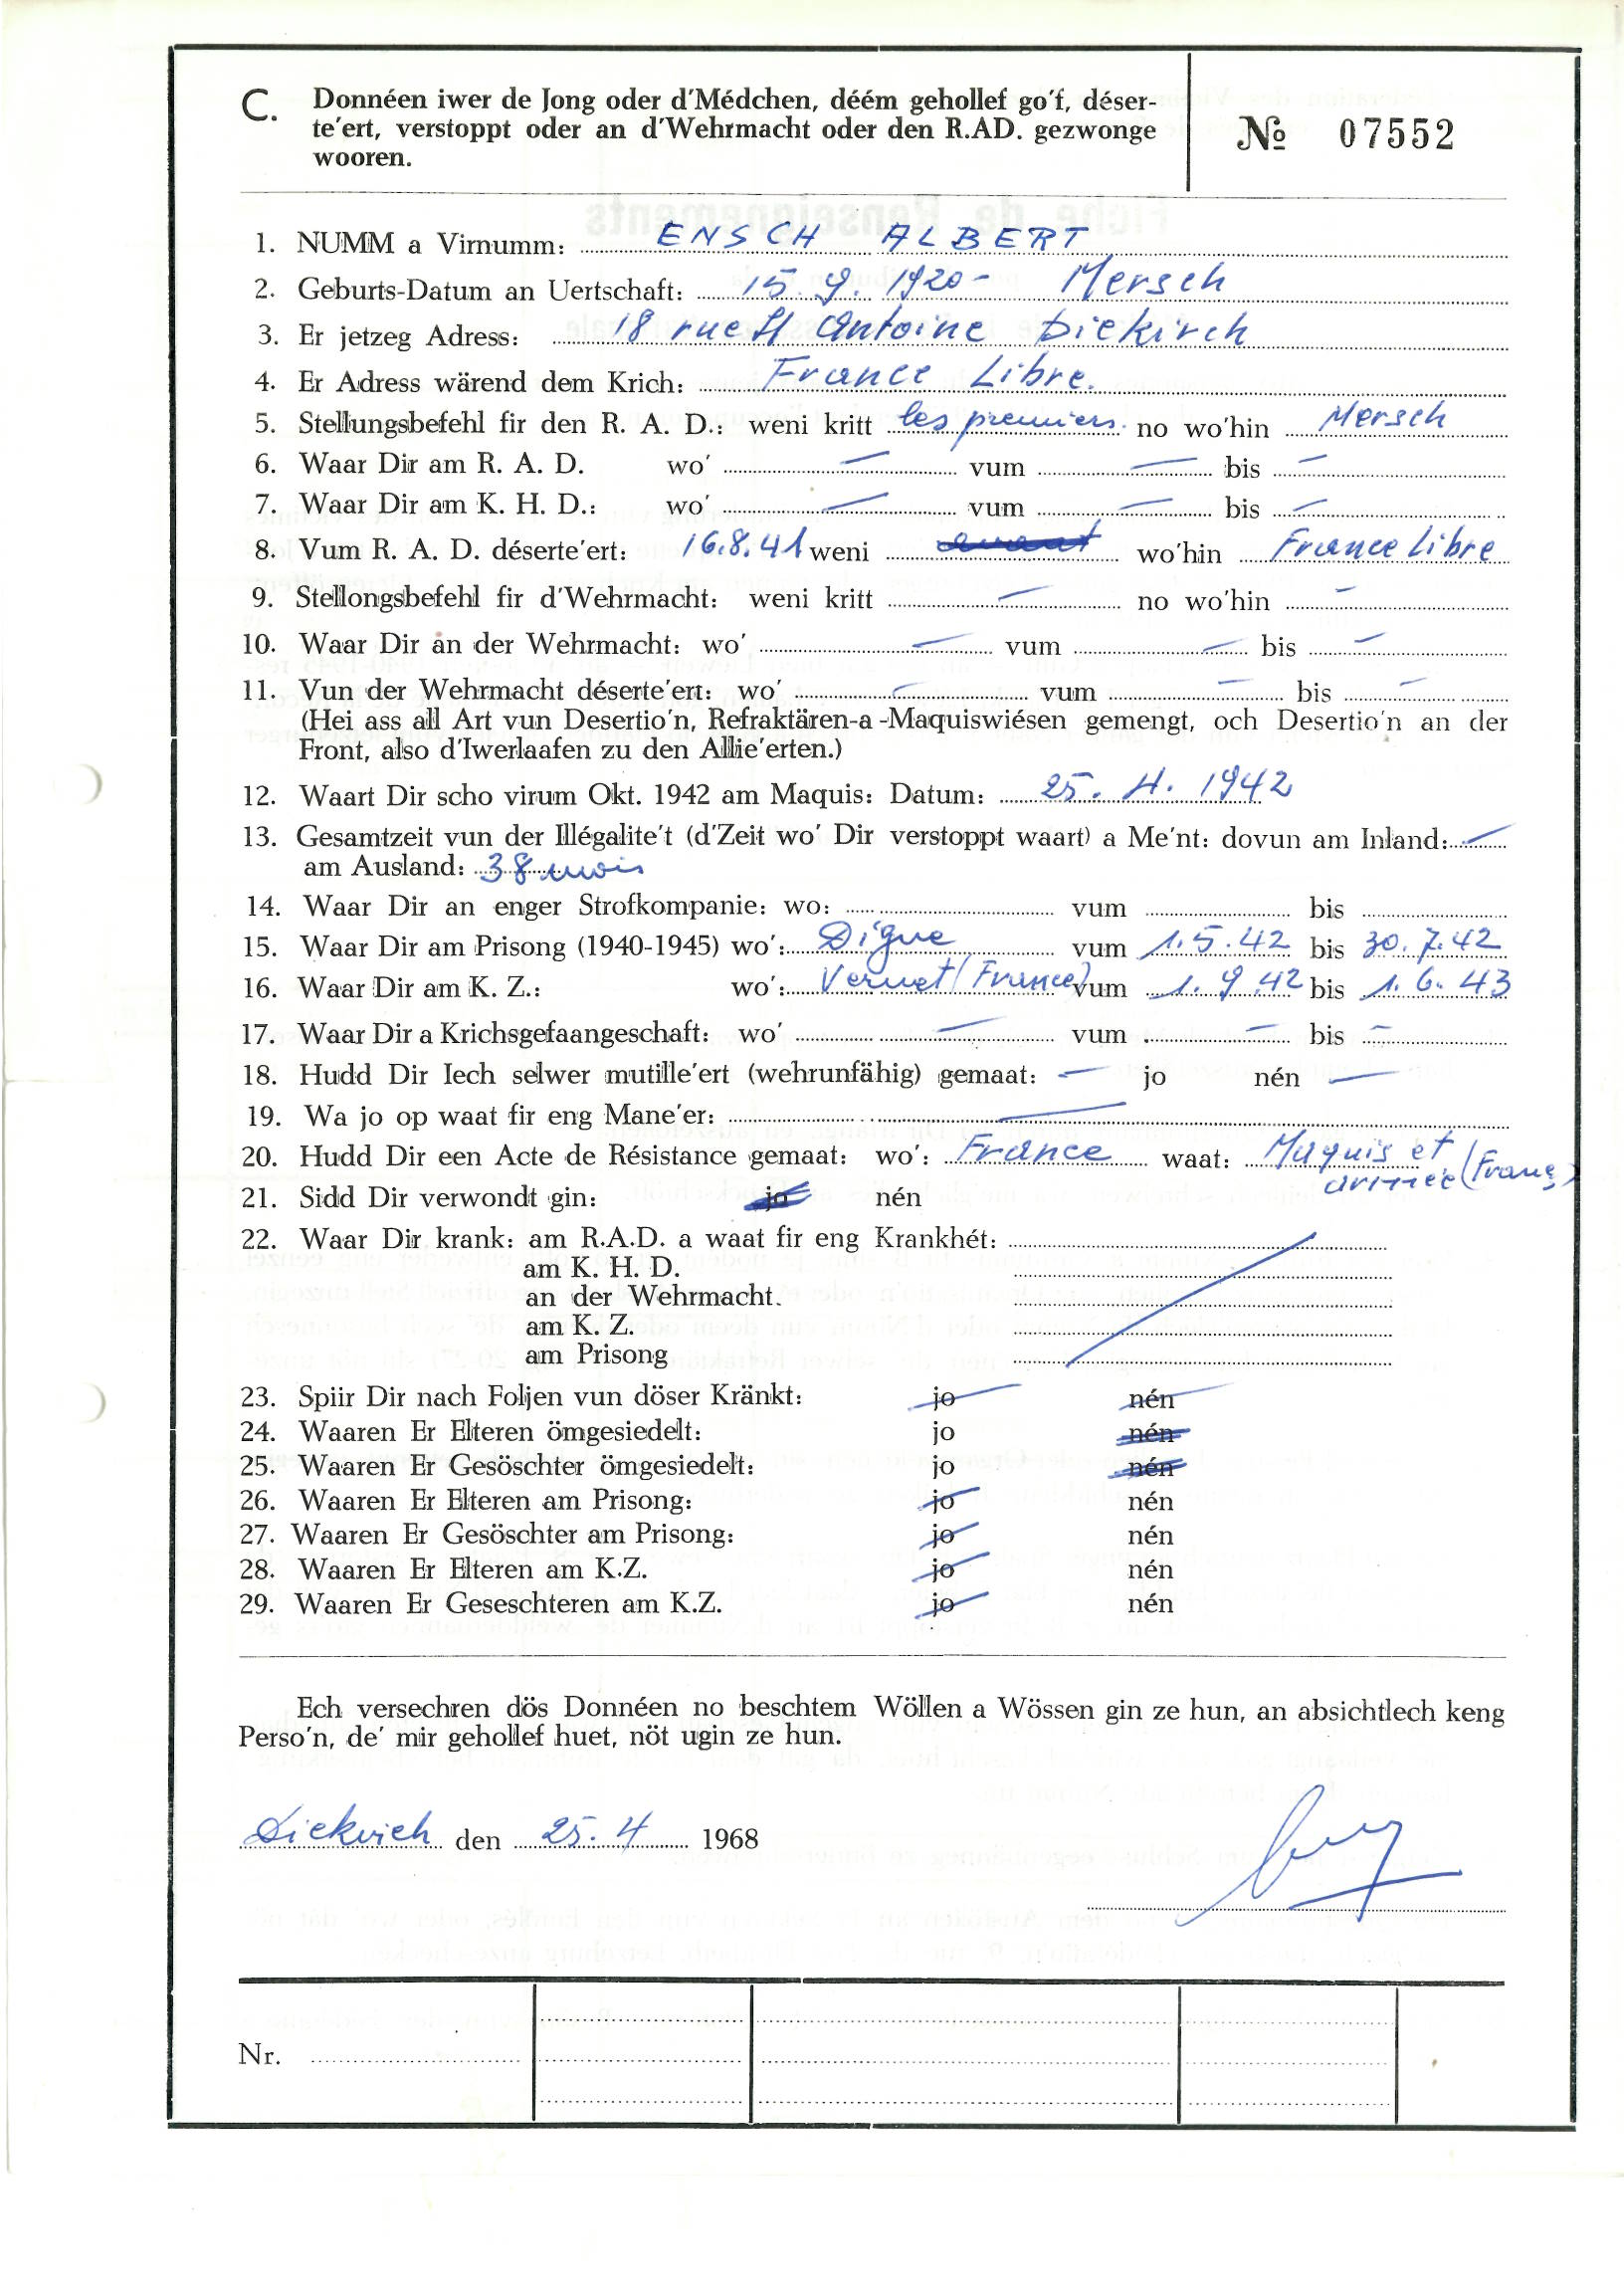 C. Donnéen iwer de Jong oder d'Médchen, déém gehollef go'f, déser-
te'ert, verstoppt oder an d'Wehrmacht oder den R.AD. gezwonge
wooren.
No 07552
1. NUMM a Virnumm: ENSCH ALBERT
2. Geburts-Datum an Uertschaft: 15. 9. 1920 - Mersch
3. Er jetzeg Adress: 18 rue St Antoine Diekirch
4. Er Adress wärend dem Krich: France Libre.
5. Stellungsbefehl fir den R. A. D.: weni kritt les premiers. no wo'hin Mersch
6. Waar Dir am R. A. D. wo' — vum — bis —
7. Waar Dir am K. H. D.: wo' — vum — bis —
8. Vum R. A. D. déserte'ert: 16.8.41 weni wo'hin France Libre
9. Stellongsbefehl fir d'Wehrmacht: weni kritt — no wo'hin —
10. Waar Dir an der Wehrmacht: wo' — vum — bis —
11. Vun der Wehrmacht déserte'ert: wo' — vum — bis —
(Hei ass all Art vun Desertio'n, Refraktären-a -Maquiswiésen gemengt, och Desertio'n an der
Front, also d'Iwerlaafen zu den Allie'erten.)
12. Waart Dir scho virum Okt. 1942 am Maquis: Datum: 25. 4. 1942
13. Gesamtzeit vun der Illégalite't (d'Zeit wo' Dir verstoppt waart) a Me'nt: dovun am Inland: —
am Ausland: 38 mois
14. Waar Dir an enger Strofkompanie: wo: vum bis
15. Waar Dir am Prisong (1940-1945) wo': Digne vum 1.5.42 bis 30.7.42
16. Waar Dir am K. Z.: wo': Vernet (France) vum 1.9.42 bis 1.6.43
17. Waar Dir a Krichsgefaangeschaft: wo' — vum — bis —
18. Hudd Dir Iech selwer mutille'ert (wehrunfähig) gemaat: — jo nén —
19. Wa jo op waat fir eng Mane'er: —
20. Hudd Dir een Acte de Résistance gemaat: wo': France waat: Maquis et
armée (Franç)
21. Sidd Dir verwondt gin: jo nén
22. Waar Dir krank: am R.A.D. a waat fir eng Krankhét:
am K. H. D.
an der Wehrmacht.
am K. Z.
am Prisong
23. Spiir Dir nach Foljen vun döser Kränkt: jo nén
24. Waaren Er Elteren ömgesiedelt: jo nén
25. Waaren Er Gesöschter ömgesiedelt: jo nén
26. Waaren Er Elteren am Prisong: jo nén
27. Waaren Er Gesöschter am Prisong: jo nén
28. Waaren Er Elteren am K.Z. jo nén
29. Waaren Er Geseschteren am K.Z. jo nén
Ech versechren dös Donnéen no beschtem Wöllen a Wössen gin ze hun, an absichtlech keng
Perso'n, de' mir gehollef huet, nöt ugin ze hun.
Diekirch den 25. 4 1968
Nr.